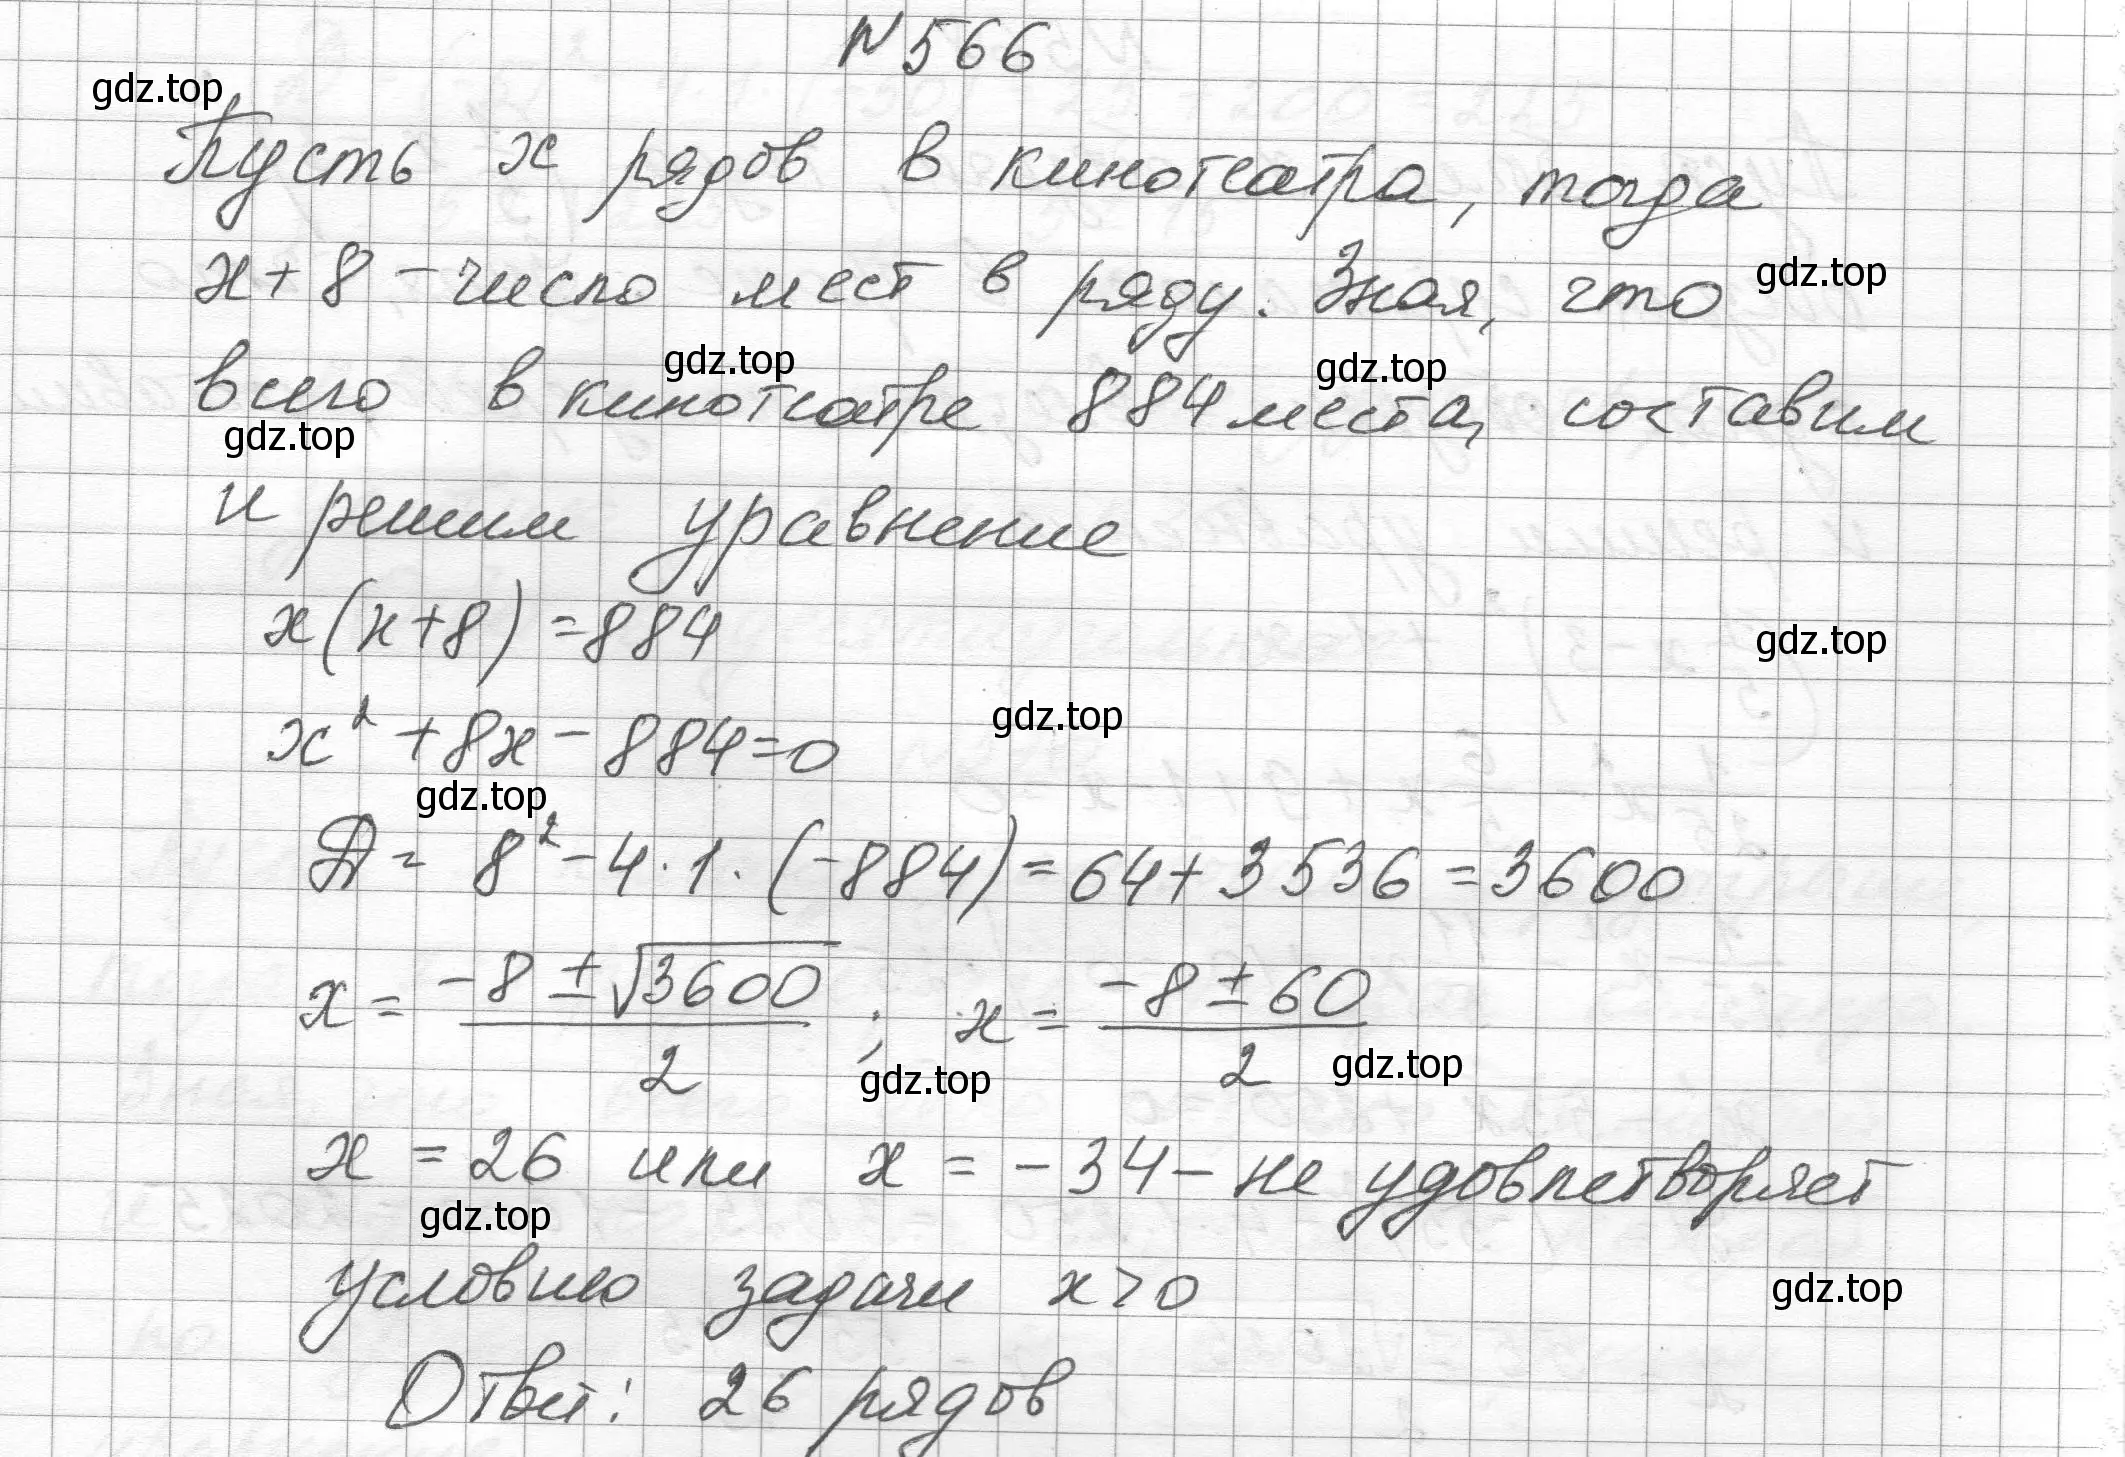 N 566
gdz.top
Пусть x рядов в кинотеатра, тогда
x+8 - число мест в ряду. Зная, что
gdz.top
gdz.top
gdz.top
всего в кинотеатре 884 места, составим
gdz.top
и решим уравнение
x(x+8)=884
gdz.top
gdz.top
x²+8x-884=0
gdz.top
Д= 8²-4·1·(-884)=64+3536=3600
x = (-8±√3600)/2 ; x = (-8±60)/2
gdz.top
gdz.top
x = 26 или x = -34 - не удовлетворяет
gdz.top
условию задачи x>0
gdz.top
Ответ: 26 рядов